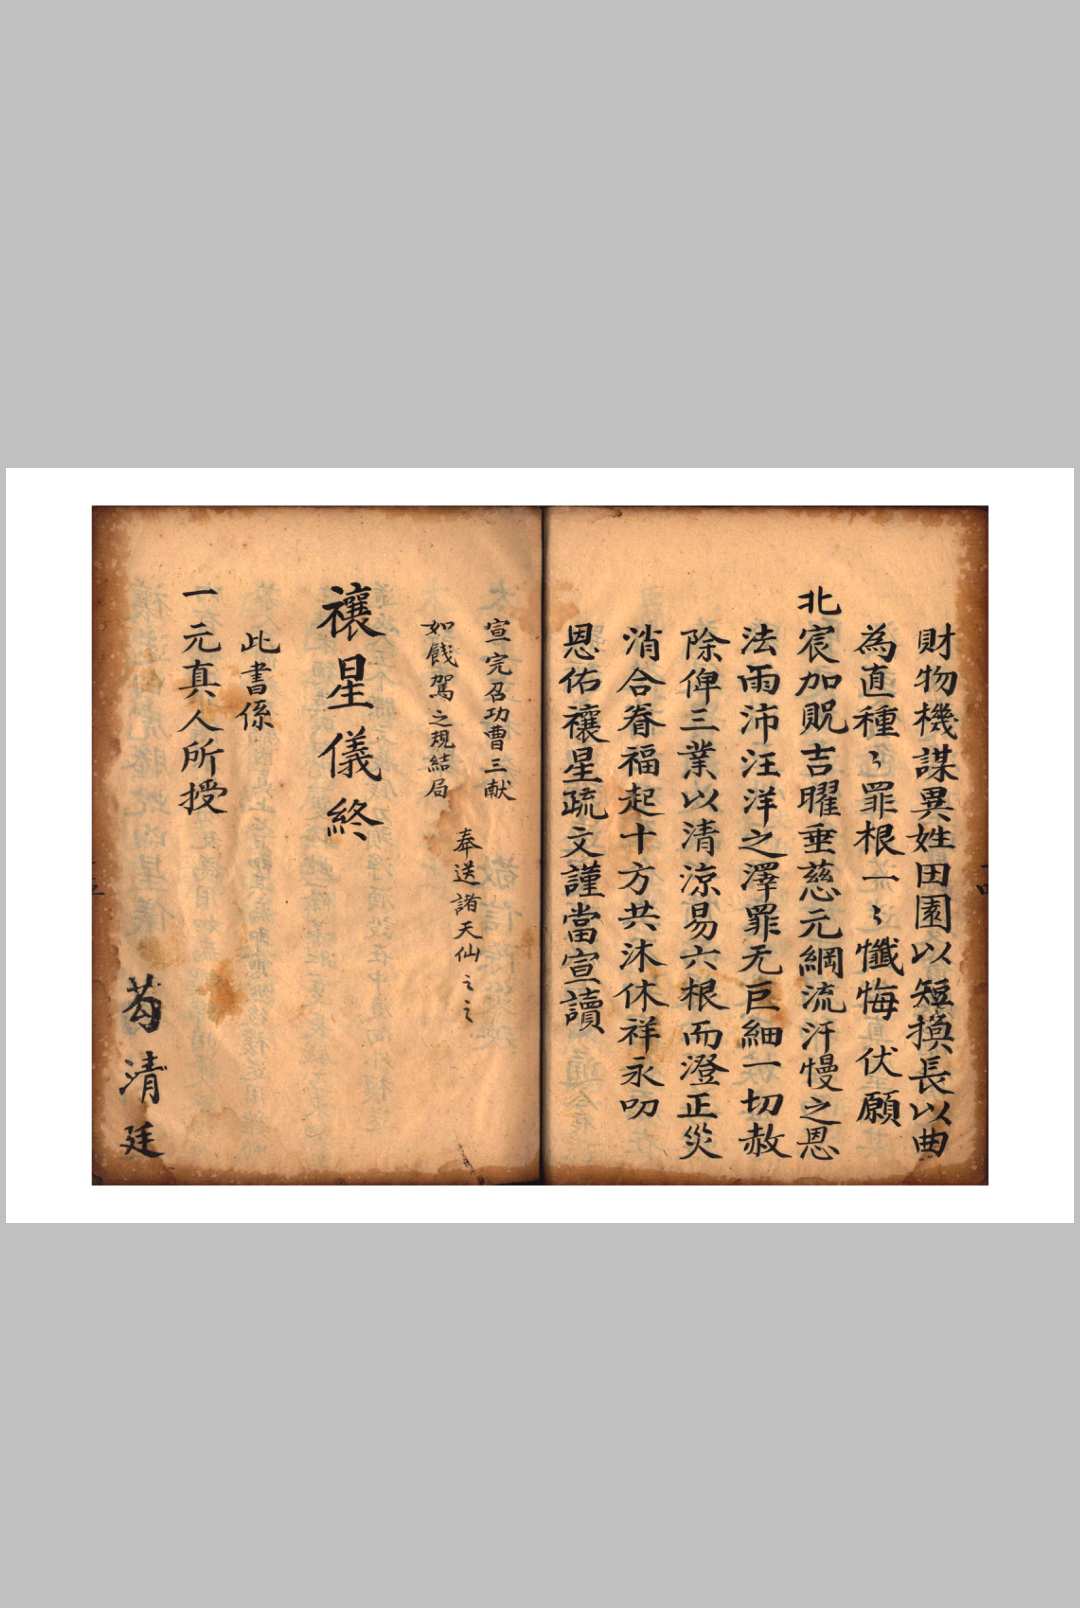 財物機謀異姓田園以短換長以曲
為直種〻罪根一〻懺悔伏願
北宸加貺吉曜垂慈元綱流汗慢之恩
法雨沛汪洋之澤罪无巨細一切赦
除俾三業以清涼易六根而澄正災
消合眷福起十方共沐休祥永叨
恩佑禳星疏文謹當宣讀
宣完召功曹三献
奉送諸天仙〻〻
如餞駕之規結局
禳星儀終
此書係
一元真人所授
芶清廷